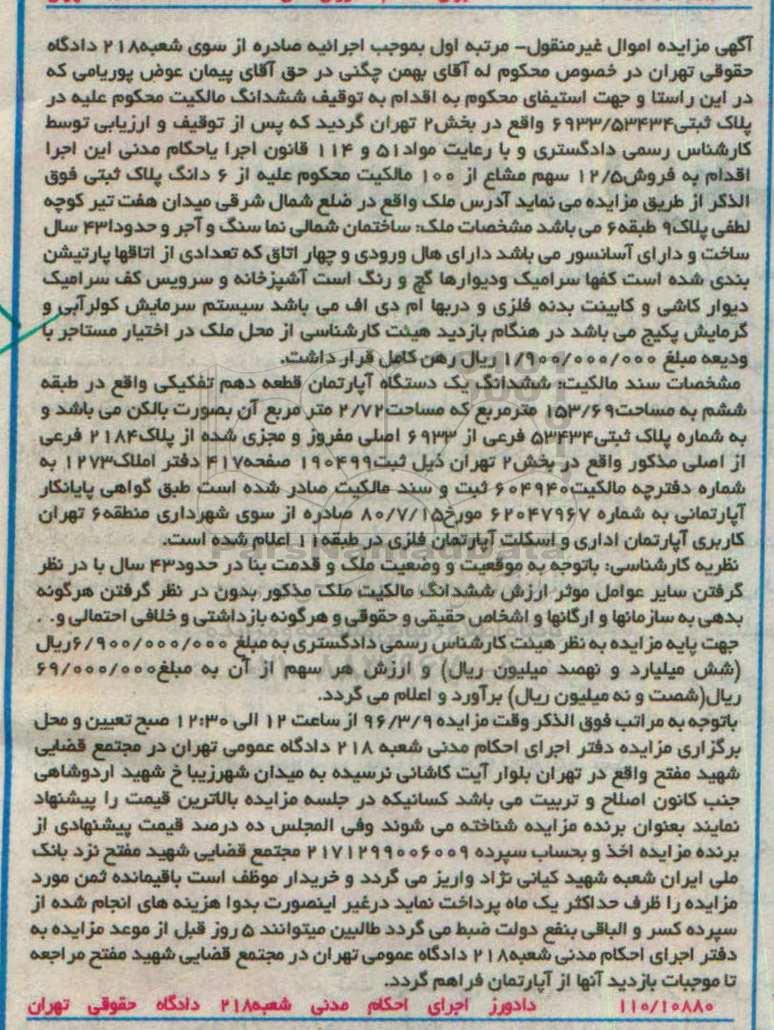 آگهی مزایده اموال غیرمنقول- مرتبه اول بموجب اجرائیه صادره از سوی شعبه۲۱۸ دادگاه
حقوقی تهران در خصوص محکوم له آقای بهمن چگنی در حق آقای پیمان عوض پوریامی که
در این راستا و جهت استیفای محکوم به اقدام به توقیف ششدانگ مالکیت محکوم علیه در
پلاک ثبتی۶۹۳۳/۵۳۴۳۴ واقع در بخش۲ تهران گردید که پس از توقیف و ارزیابی توسط
کارشناس رسمی دادگستری و با رعایت مواد۵۱ و ۱۱۴ قانون اجرا یاحکام مدنی این اجرا
اقدام به فروش۱۲/۵ سهم مشاع از ۱۰۰ مالکیت محکوم علیه از ۶ دانگ پلاک ثبتی فوق
الذکر از طریق مزایده می نماید آدرس ملک واقع در ضلع شمال شرقی میدان هفت تیر کوچه
لطفی پلاک۹ طبقه۶ می باشد مشخصات ملک: ساختمان شمالی نما سنگ و آجر و حدودا۴۳ سال
ساخت و دارای آسانسور می باشد دارای هال ورودی و چهار اتاق که تعدادی از اتاقها پارتیشن
بندی شده است کفها سرامیک ودیوارها گچ و رنگ است آشپزخانه و سرویس کف سرامیک
دیوار کاشی و کابینت بدنه فلزی و دربها ام دی اف می باشد سیستم سرمایش کولرآبی و
گرمایش پکیج می باشد در هنگام بازدید هیئت کارشناسی از محل ملک در اختیار مستاجر با
ودیعه مبلغ ۱/۹۰۰/۰۰۰/۰۰۰ ریال رهن کامل قرار داشت.
مشخصات سند مالکیت: ششدانگ یک دستگاه آپارتمان قطعه دهم تفکیکی واقع در طبقه
ششم به مساحت۱۵۳/۶۹ مترمربع که مساحت۲/۷۲ متر مربع آن بصورت بالکن می باشد و
به شماره پلاک ثبتی۵۳۴۳۴ فرعی از ۶۹۳۳ اصلی مفروز و مجزی شده از پلاک۲۱۸۴ فرعی
از اصلی مذکور واقع در بخش۲ تهران ذیل ثبت۱۹۰۴۹۹ صفحه۴۱۷ دفتر املاک۱۲۷۳ به
شماره دفترچه مالکیت۶۰۴۹۴۰ ثبت و سند مالکیت صادر شده است طبق گواهی پایانکار
آپارتمانی به شماره ۶۲۰۴۷۹۶۷ مورخ۸۰/۷/۱۵ صادره از سوی شهرداری منطقه۶ تهران
کاربری آپارتمان اداری و اسکلت آپارتمان فلزی در طبقه۱۱ اعلام شده است.
نظریه کارشناسی: باتوجه به موقعیت و وضعیت ملک و قدمت بنا در حدود۴۳ سال با در نظر
گرفتن سایر عوامل موثر ارزش ششدانگ مالکیت ملک مذکور بدون در نظر گرفتن هرگونه
بدهی به سازمانها و ارگانها و اشخاص حقیقی و حقوقی و هرگونه بازداشتی و خلافی احتمالی و. .
جهت پایه مزایده به نظر هیئت کارشناس رسمی دادگستری به مبلغ ۶/۹۰۰/۰۰۰/۰۰۰ریال
(شش میلیارد و نهصد میلیون ریال) و ارزش هر سهم از آن به مبلغ۶۹/۰۰۰/۰۰۰
ریال(شصت و نه میلیون ریال) برآورد و اعلام می گردد.
باتوجه به مراتب فوق الذکر وقت مزایده ۹۶/۳/۹ از ساعت ۱۲ الی ۱۲:۳۰ صبح تعیین و محل
برگزاری مزایده دفتر اجرای احکام مدنی شعبه ۲۱۸ دادگاه عمومی تهران در مجتمع قضایی
شهید مفتح واقع در تهران بلوار آیت کاشانی نرسیده به میدان شهرزیبا خ شهید اردوشاهی
جنب کانون اصلاح و تربیت می باشد کسانیکه در جلسه مزایده بالاترین قیمت را پیشنهاد
نمایند بعنوان برنده مزایده شناخته می شوند وفی المجلس ده درصد قیمت پیشنهادی از
برنده مزایده اخذ و بحساب سپرده ۲۱۷۱۲۹۹۰۰۶۰۰۹ مجتمع قضایی شهید مفتح نزد بانک
ملی ایران شعبه شهید کیانی نژاد واریز می گردد و خریدار موظف است باقیمانده ثمن مورد
مزایده را ظرف حداکثر یک ماه پرداخت نماید درغیر اینصورت بدوا هزینه های انجام شده از
سپرده کسر و الباقی بنفع دولت ضبط می گردد طالبین میتوانند ۵ روز قبل از موعد مزایده به
دفتر اجرای احکام مدنی شعبه۲۱۸ دادگاه عمومی تهران در مجتمع قضایی شهید مفتح مراجعه
تا موجبات بازدید آنها از آپارتمان فراهم گردد.
۱۱۰/۱۰۸۸۰ دادورز اجرای احکام مدنی شعبه۲۱۸ دادگاه حقوقی تهران